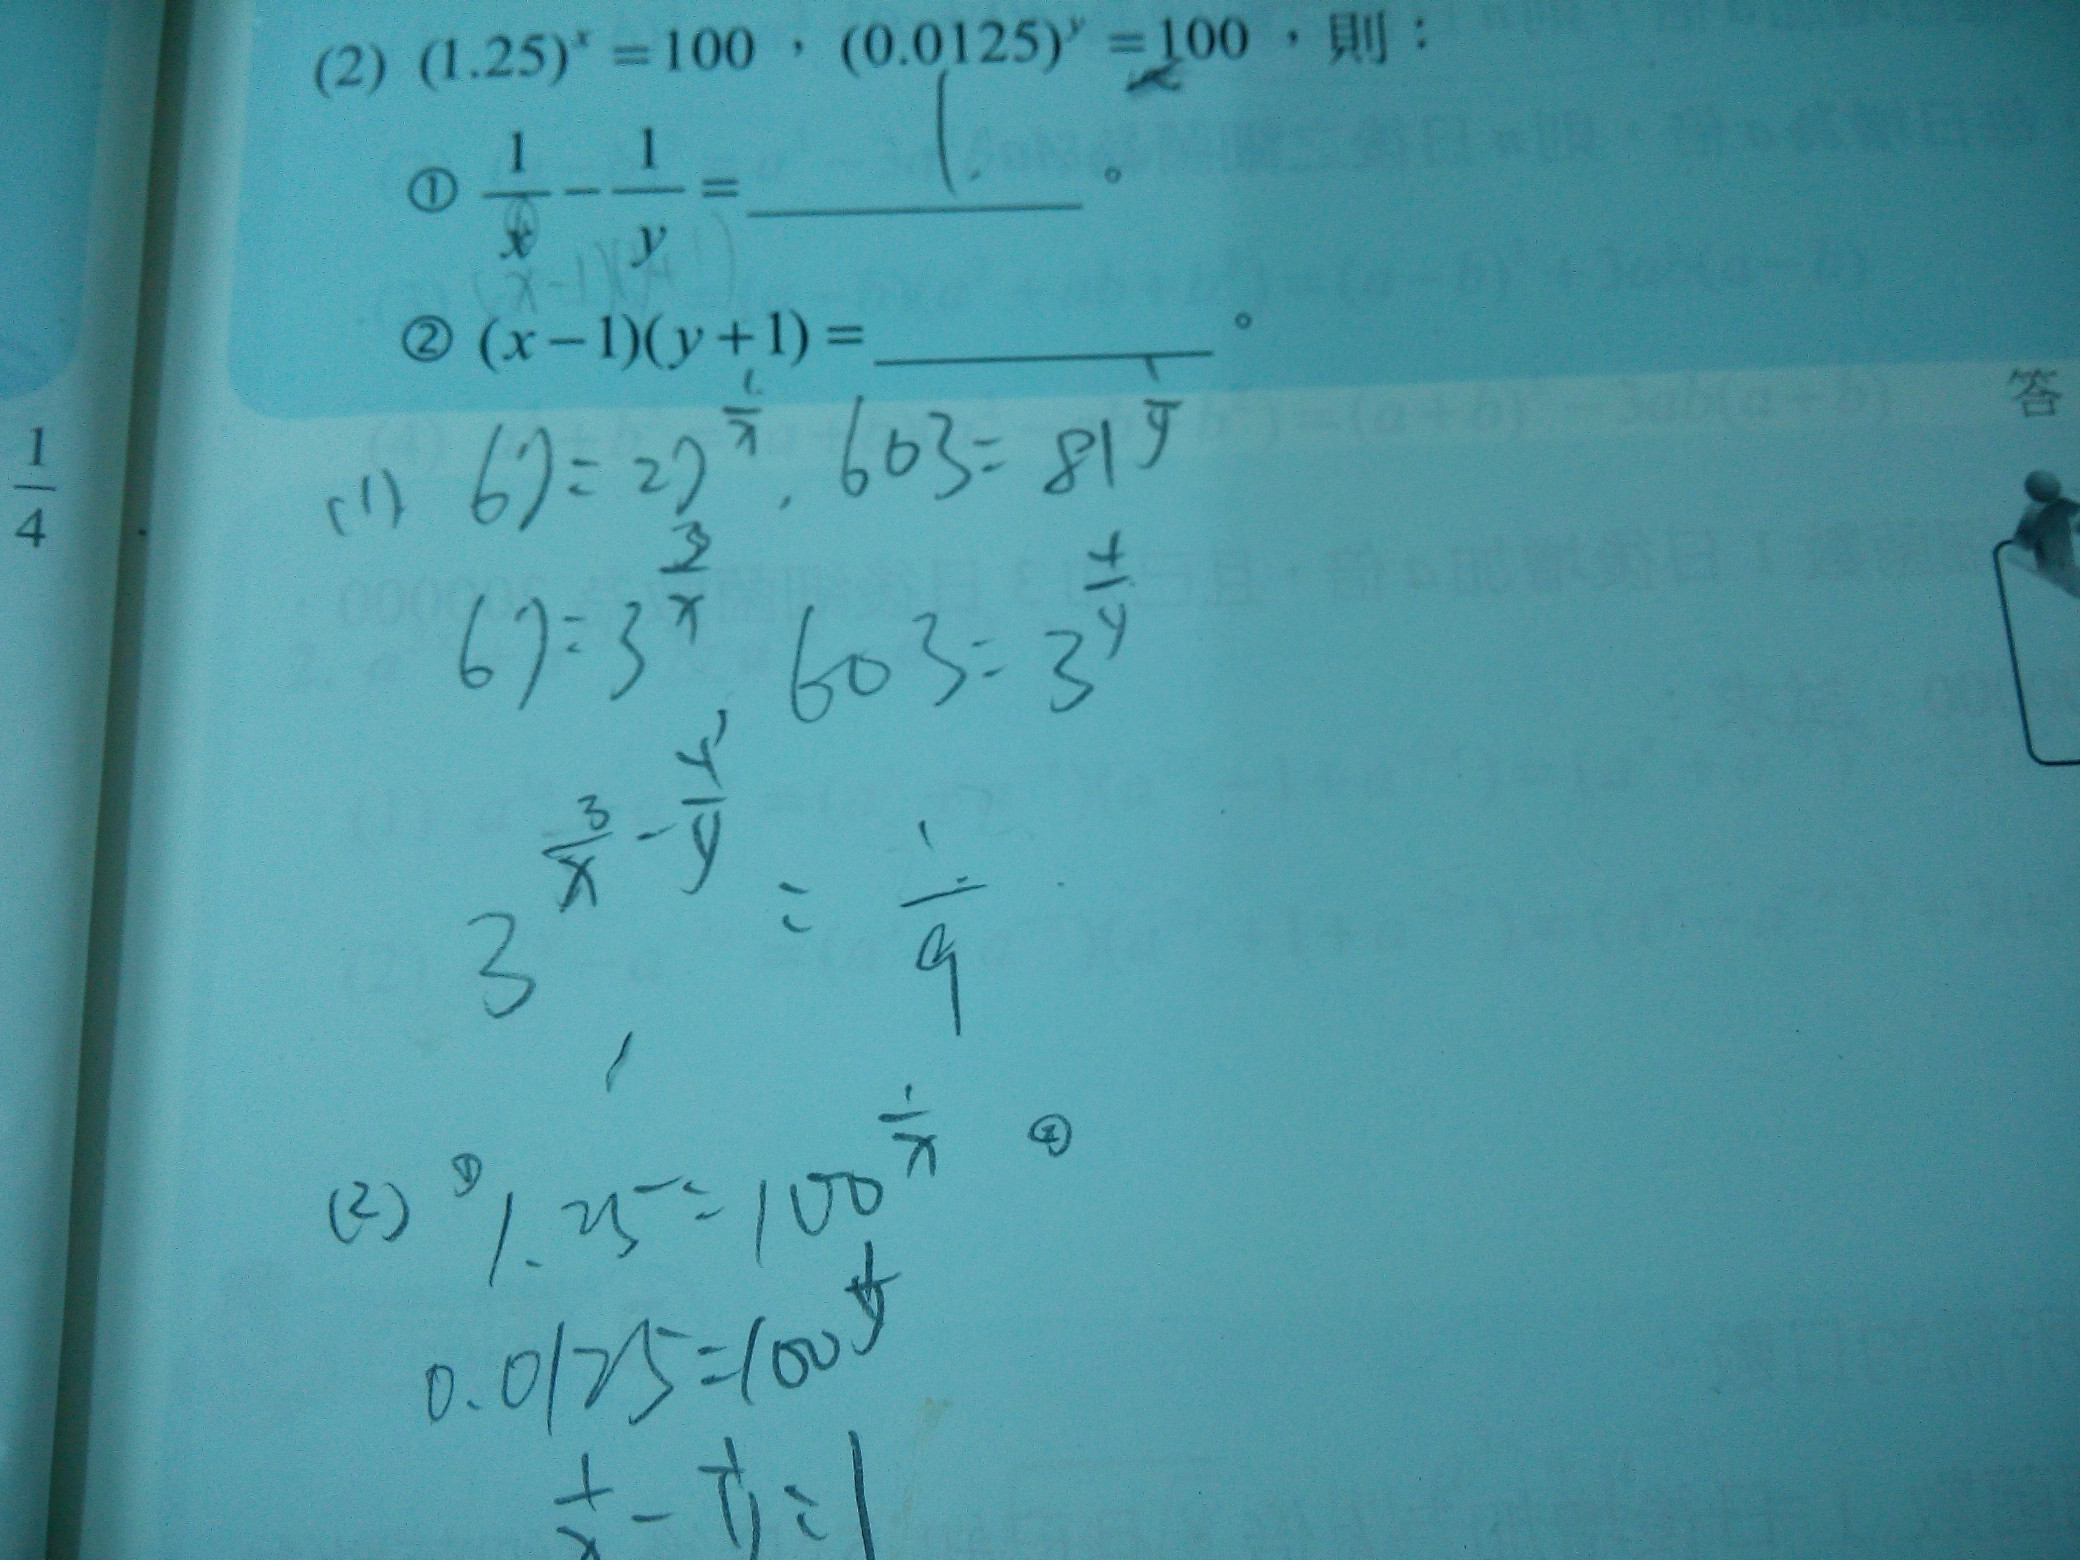 (2) (1.25)^x = 100，(0.0125)^y = 100，則：
① 1/x − 1/y = 1 。
(x-1)(y+1)
② (x−1)(y+1) = ______ 。
答
1/4
(1) 67 = 27^(1/x) , 603 = 81^(1/y)
67 = 3^(3/x) 603 = 3^(4/y)
3^(3/x − 4/y) = 1/9
(2) ① 1.25 = 100^(1/x) ②
0.0125 = 100^(1/y)
1/x − 1/y = 1